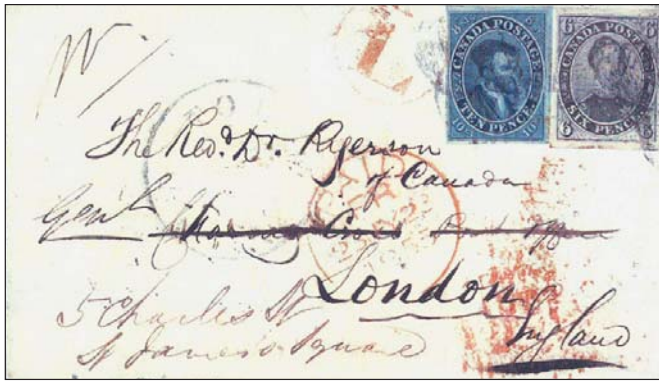 CANADA POSTAGE
TEN PENCE
CANADA POSTAGE
SIX PENCE
The Revd. Dr. Ryerson
of Canada
Genl
London
England
5 Charles St
St James's Square
PAID